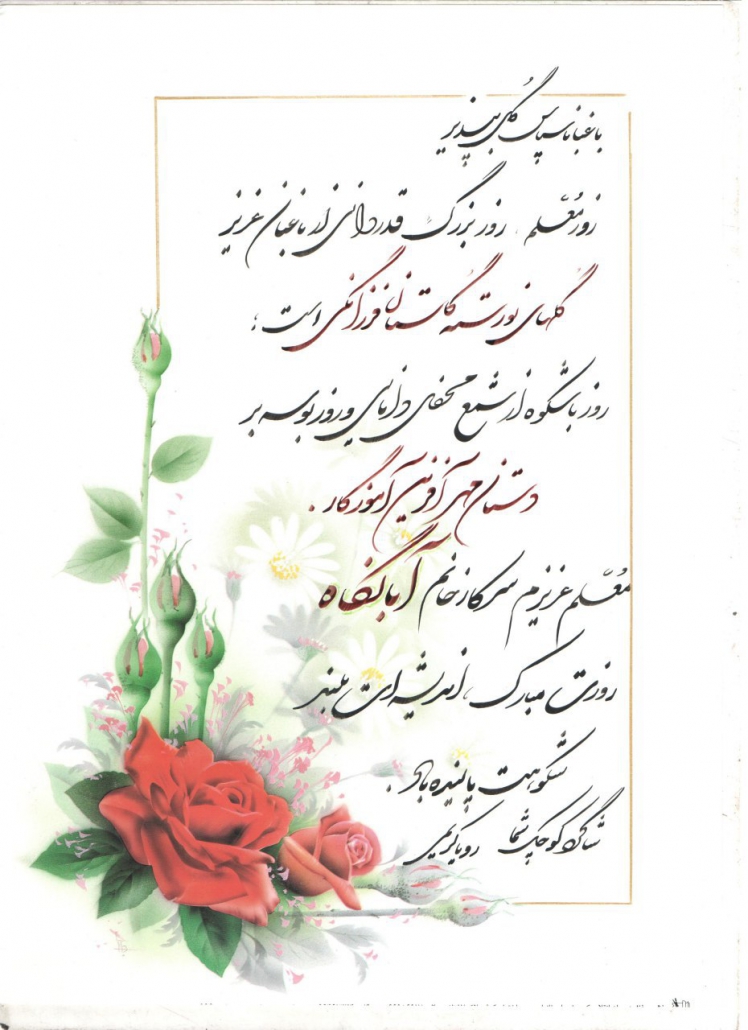 باغبانا سپاس گل بپذیر
روز معلّم، روز بزرگ قدردانی از باغبان عزیز
گلهای نورسته گلستان فرزانگی است؛
روز باشکوه از شمع محفل دانایی و روز بوسه بر
دستان مهرآفرین آموزگار.
معلّم عزیزم سرکار خانم آبانگاه
روزت مبارک، اندیشه‌ات بلند
شکوهت پاینده باد.
شاگرد کوچک شما رویا کریمی